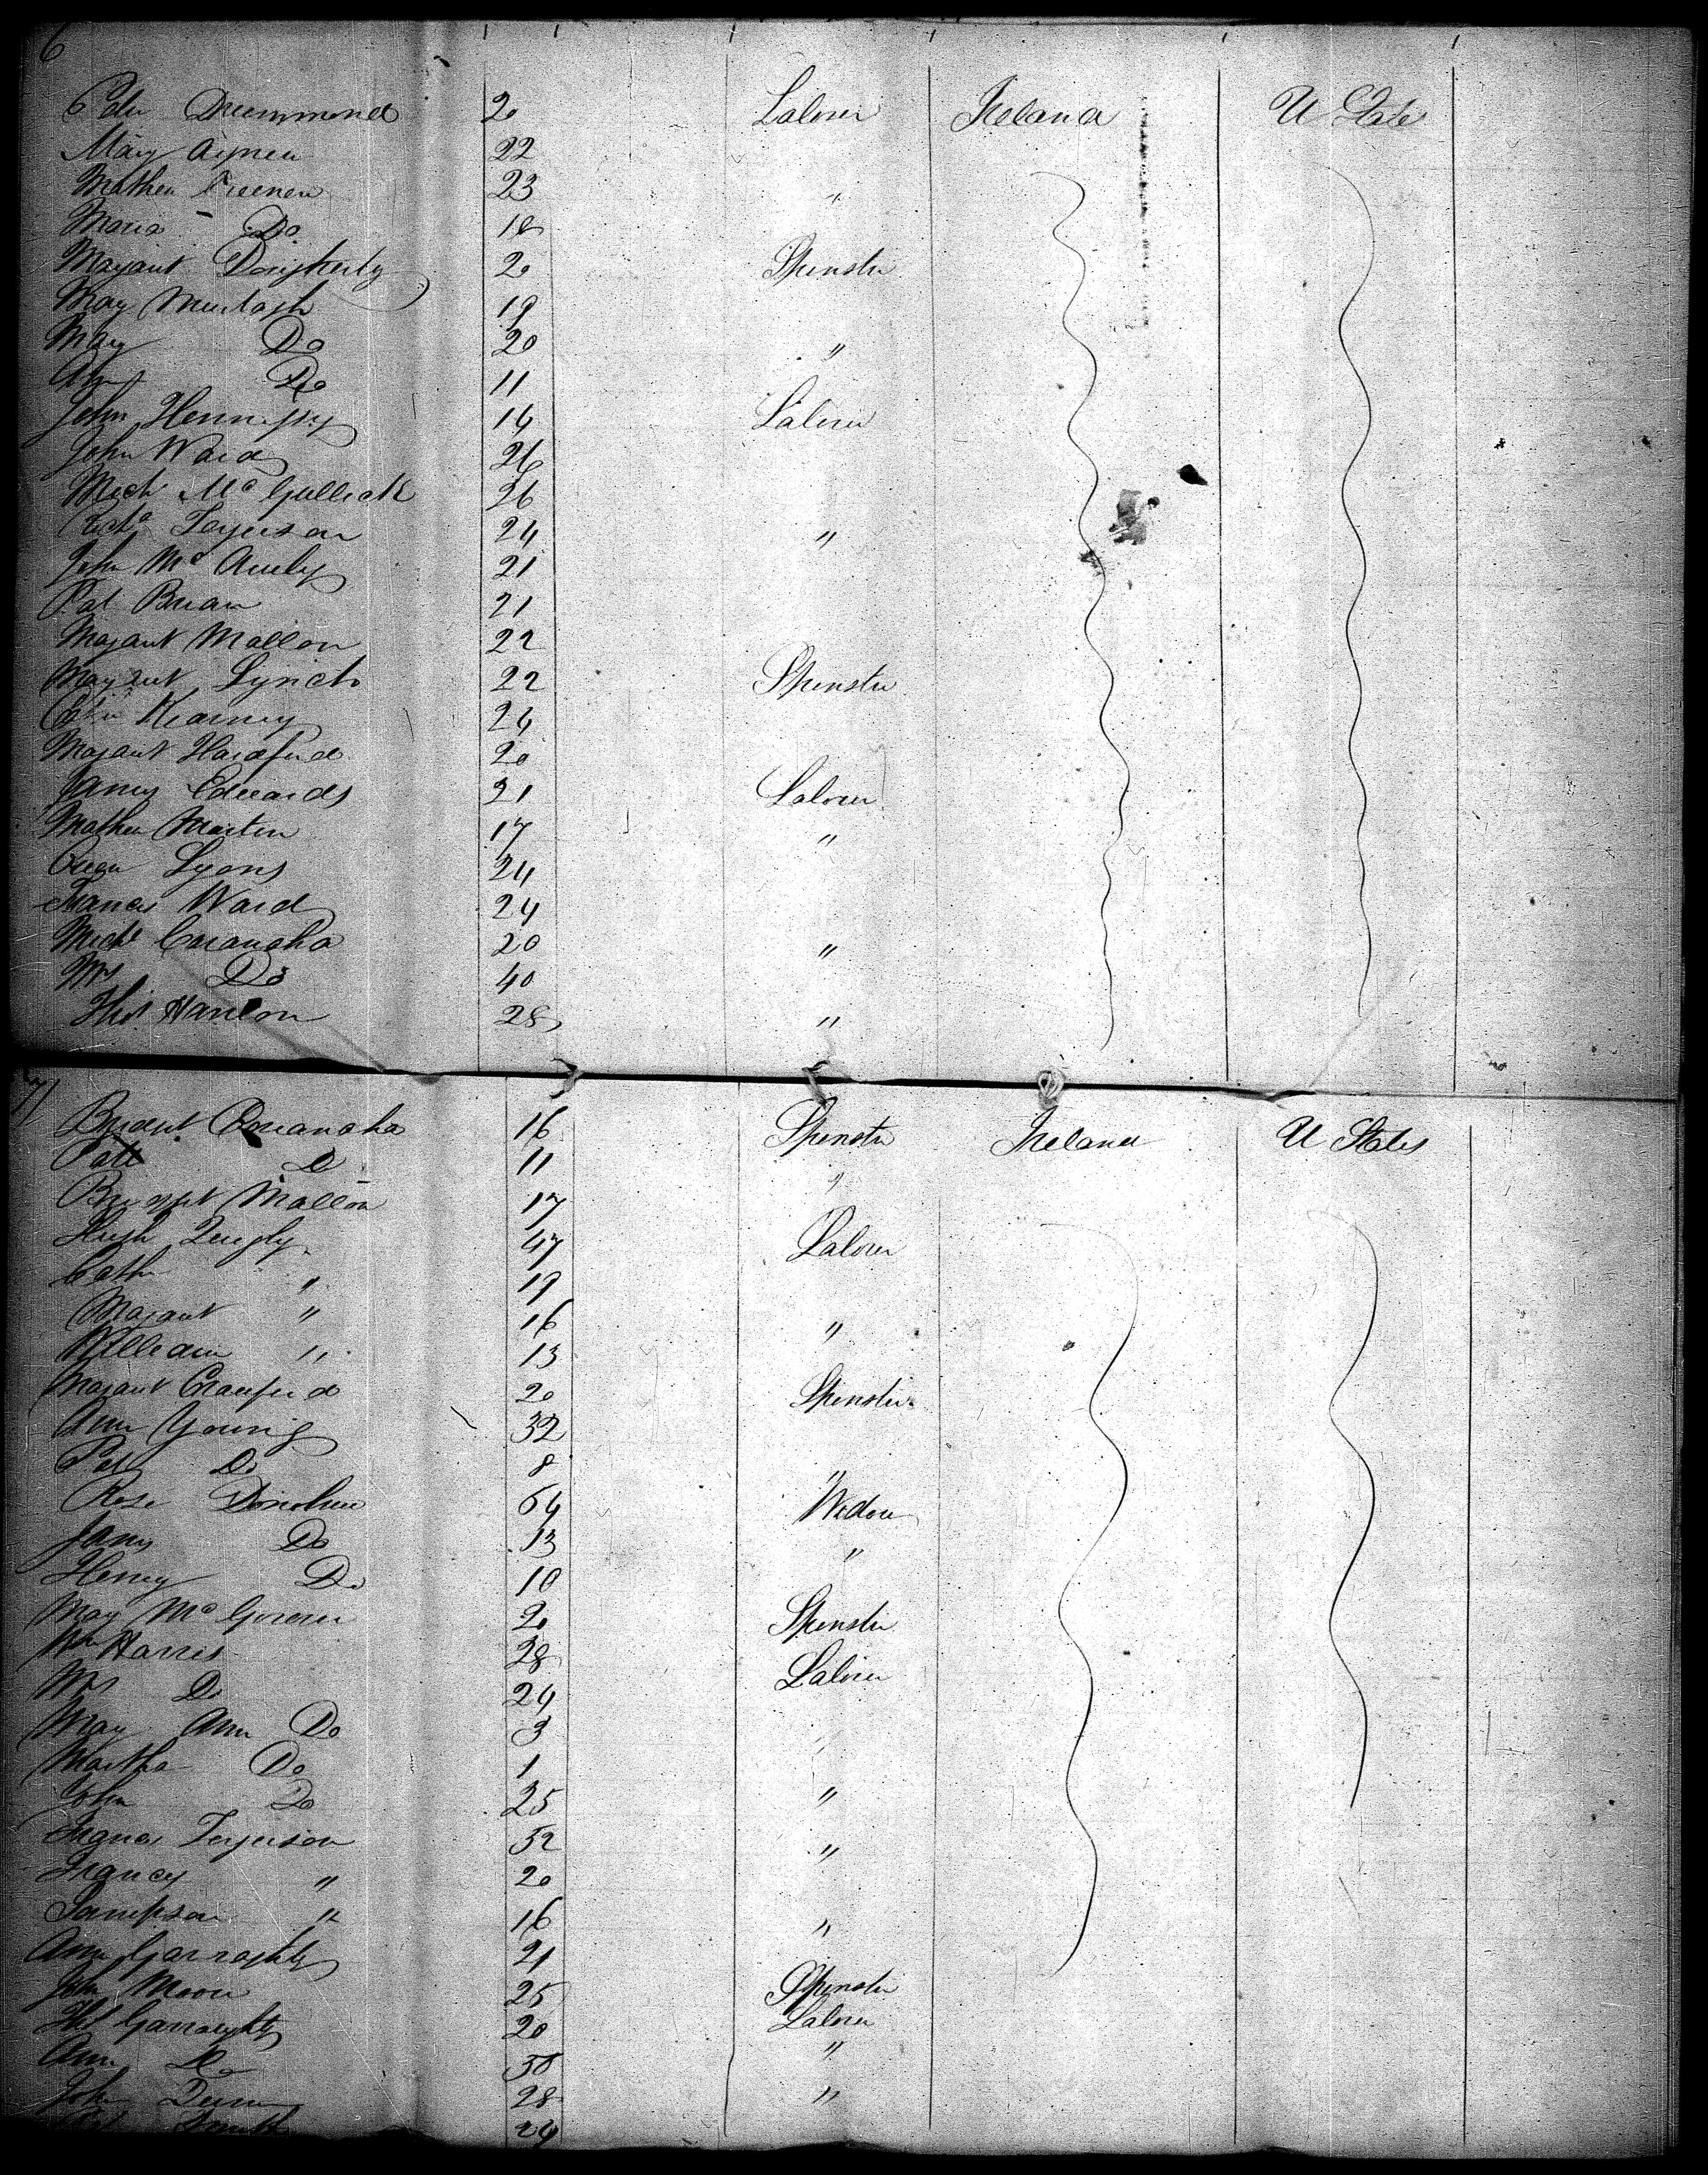 6
Peter Drummond 20 Laborer Ireland U States
Mary 22
Mathew 23 "
Maria Do 18
Margaret Dougherty 20 Spinster
Mary Murtagh 19
Mary Do 20 "
Ann Do 11
John Hennessy 14 Laborer
John Ward 26
Mich Mc Gullick 26
Ferguson 24 "
John Mc Auely 21
Pat Brian 21
Margaret Mallon 22
Margaret Lynch 22 Spinster
Cathe Kearney 24
Margaret Hardford 20
James Edwards 21 Laborer
Mathew Martin 17 "
Owen Lyons 24
Francis Ward 24
Michl 20 "
Mrs Do 40
Thos Hanlon 28 "
7
Bridget 16 Spinster Ireland U States
Patt D 11 "
Bridget Mallon 17
Hugh Quigly 47 Laborer
Cath " 19
Margaret " 16 "
William " 13
Margaret Crawford 20 Spinster
Ann Young 32
Pat Do 8 "
Rose Donohue 64 Widow
James Do 13 "
Henry Do 10
Mary Mc Govern 20 Spinster
Wm Harris 28 Laborer
Mrs Do 24
Mary Ann Do 3 "
Martha Do 1
John Do 25 "
Francis Ferguson 52 "
Francis " 20
Sampson " 16 "
Ann Garraghty 21
John Moore 25 Spinster
Thos Garraghty 20 Laborer
Ann Do 30 "
John Dunn 28 "
Smith 24